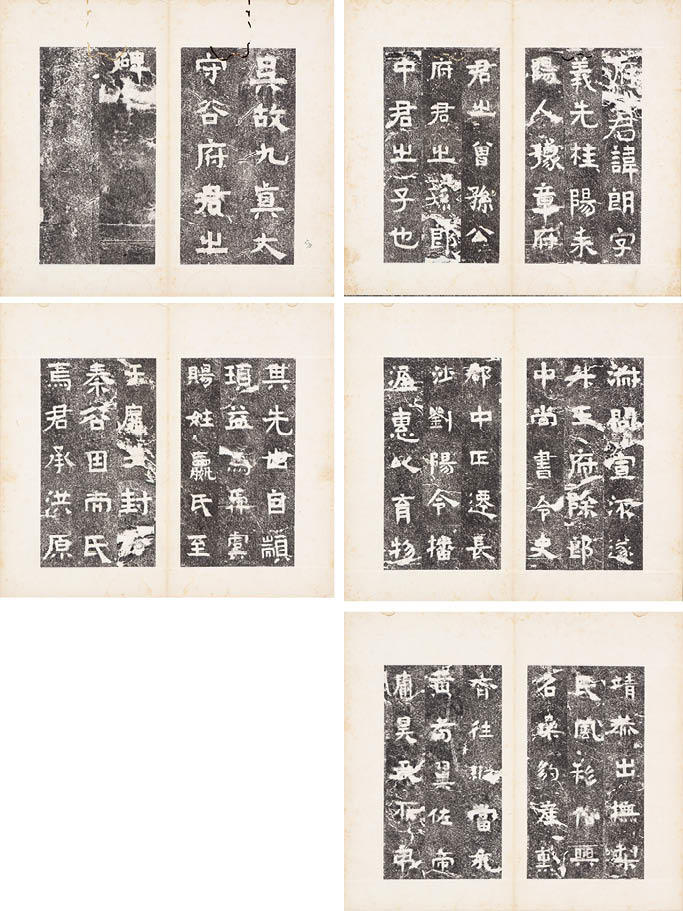 吳故九真太
守谷府君之
碑
府君諱朗字
義先桂陽耒
陽人豫章府
君之曾孫公
府君之孫郎
中君之子也
其先世自顓
頊益為舜虞
賜姓嬴氏至
于 封
秦谷因而氏
焉君承洪原
宣 遂
升王府除郎
中尚書令史
郡中正遷長
沙劉陽令播
渥惠以育物
靖恭出撫梨
民風 興
名 豹產
齊往 當永
黃耇翼佐帝
庸昊天不弔